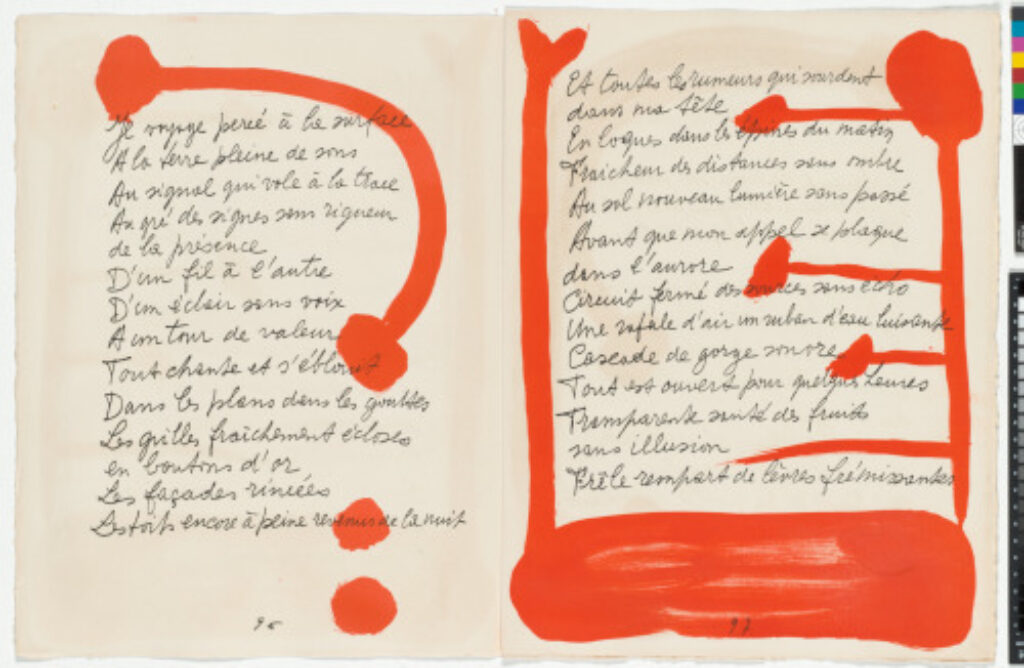 Je voyage percé à la surface
A la terre pleine de sons
Au signal qui vole à la trace
Au gré des signes sans rigueur
de la présence
D'un fil à l'autre
D'un éclair sans voix
A un tour de valeur
Tout chante et s'éblouit
Dans les plans dans les gouttes
Les grilles fraîchement écloses
en boutons d'or
Les façades rincées
Les toits encore à peine revenus de la nuit
96
Et toutes les rumeurs qui sourdent
dans ma tête
En loques dans les épines du matin
Fraîcheur des distances sans ombre
Au sol nouveau lumière sans passé
Avant que mon appel se plaque
dans l'aurore
Circuit fermé des sources sans écho
Une rafale d'air un ruban d'eau luisante
Cascade de gorge sonore
Tout est ouvert pour quelques heures
Transparente santé des fruits
sans illusion
Frêle rempart de lèvres frémissantes
97